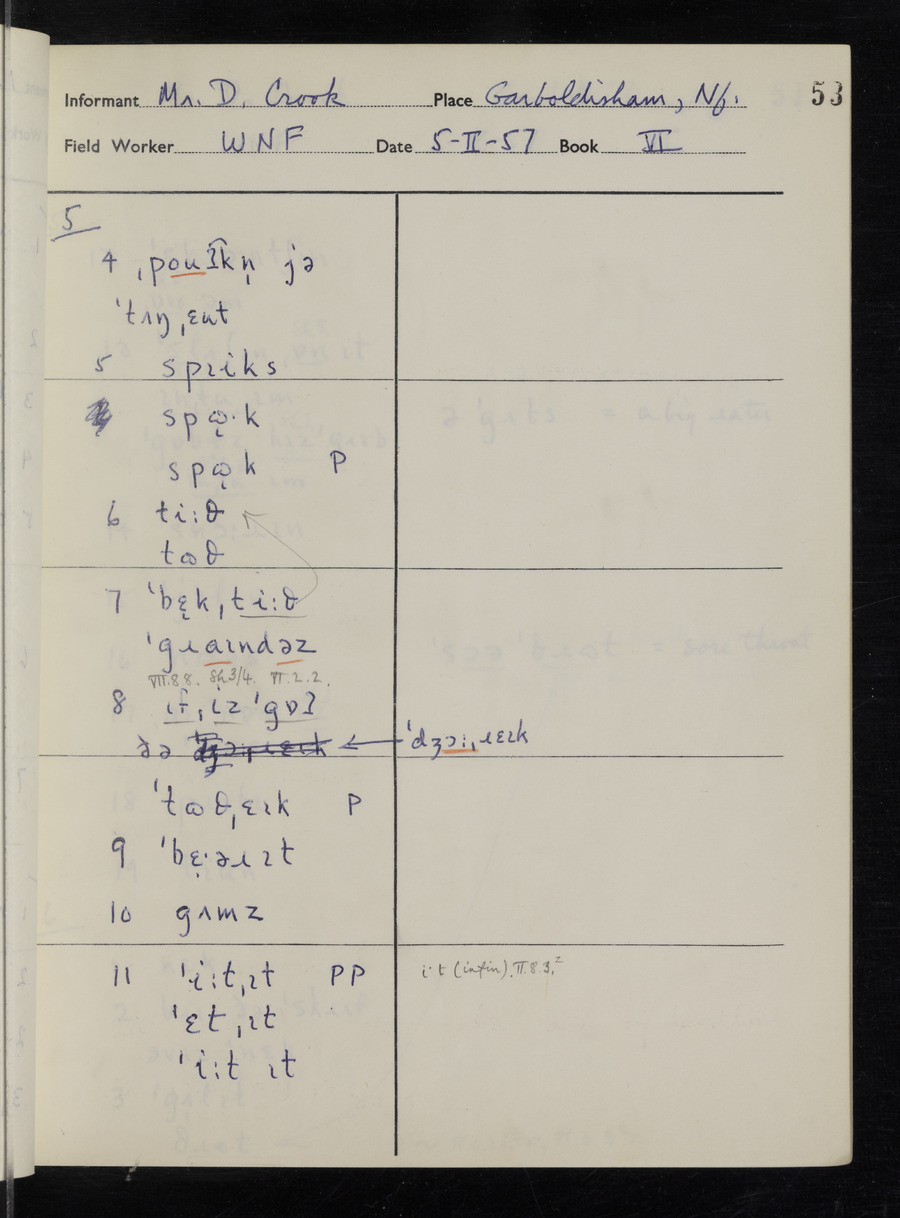 Informant Mr. D. Crook Place Garboldisham, Nf. 53
Field Worker WNF Date 5-II-57 Book VI
5
4 ˌpouʔk̑n̩ jə
ˈtʌŋˌɛut
5 spɹiks
spω̜·k
spω̜k P
6 ti:θ
tωθ
7 ˈbɛ̜kˌti:θ
ˈgɹaɪndəz
VIII.8.8. Sh 3/4. VI.2.2.
8 ɪfˌɪz ˈgɒʔ
ðə ˈdʒɔ:ˌɹɛɪk
ˈtωθˌɛɪk P
9 ˈbɛ̜·əɹɪt
10 gʌmz
11 ˈi:tˌɪt PP i·t (infin). II.8.3.²
ˈɛtˌɪt
ˈi:t ɪt